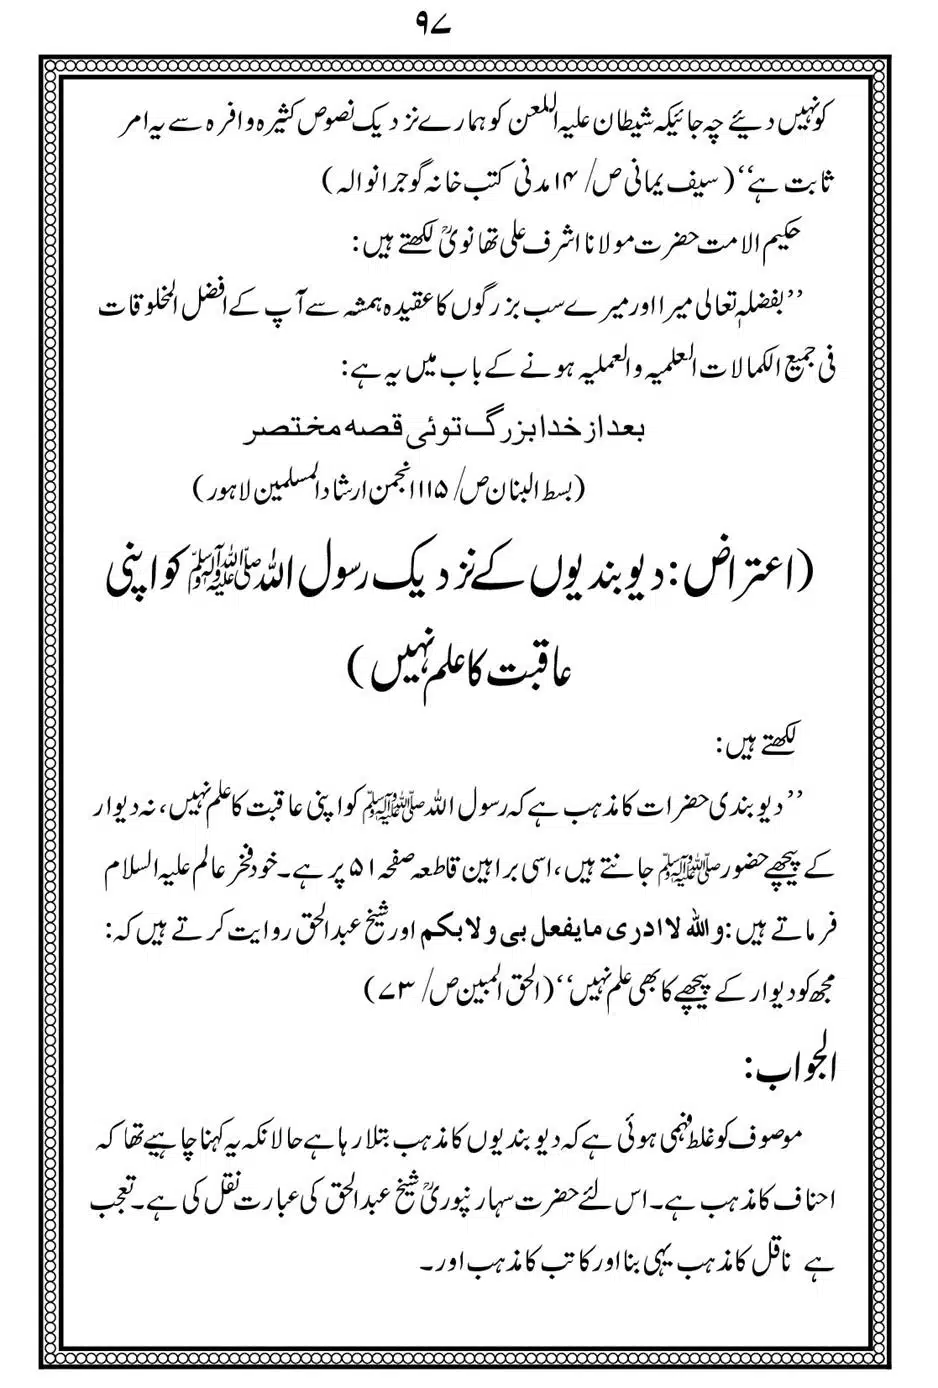 ۹۷
کو نہیں دیئے چہ جائیکہ شیطان علیہ اللعن کو ہمارے نزدیک نصوص کثیرہ وافرہ سے یہ امر
ثابت ہے‘‘ (سیف یمانی ص/ ۱۴ مدنی کتب خانہ گوجرانوالہ)
حکیم الامت حضرت مولانا اشرف علی تھانویؒ لکھتے ہیں:
’’بفضلہٖ تعالی میرا اور میرے سب بزرگوں کا عقیدہ ہمشہ سے آپ کے افضل المخلوقات
فی جمیع الکمالات العلمیہ والعملیہ ہونے کے باب میں یہ ہے:
بعد از خدا بزرگ توئی قصہ مختصر
(بسط البنان ص/ ۱۱۵ انجمن ارشاد المسلمین لاہور)
(اعتراض: دیوبندیوں کے نزدیک رسول اللہ ﷺ کو اپنی
عاقبت کا علم نہیں)
لکھتے ہیں:
’’دیوبندی حضرات کا مذہب ہے کہ رسول اللہ ﷺ کو اپنی عاقبت کا علم نہیں، نہ دیوار
کے پیچھے حضور ﷺ جانتے ہیں، اسی براہین قاطعہ صفحہ ۵۱ پر ہے۔ خود فخر عالم علیہ السلام
فرماتے ہیں: واللہ لا ادری مایفعل بی ولا بکم اور شیخ عبدالحق روایت کرتے ہیں کہ:
مجھ کو دیوار کے پیچھے کا بھی علم نہیں‘‘ (الحق المبین ص/ ۷۳)
الجواب:
موصوف کو غلط فہمی ہوئی ہے کہ دیوبندیوں کا مذہب بتلا رہا ہے حالانکہ یہ کہنا چاہیے تھا کہ
احناف کا مذہب ہے۔ اس لئے حضرت سہارنپوریؒ شیخ عبدالحق کی عبارت نقل کی ہے۔ تعجب
ہے ناقل کا مذہب یہی بنا اور کاتب کا مذہب اور۔